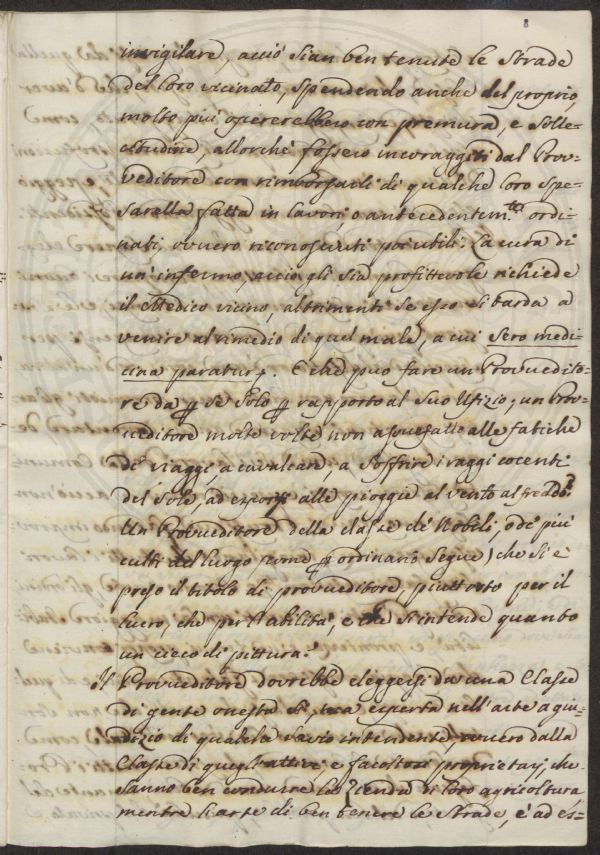 8
invigilare, acciò sian ben tenute le Strade
del loro vicinato, spendendo anche del proprio,
molto più opererebbero con premura, e Solle-
citudine, allorchè fossero incoraggiti dal Prov-
veditore con rimborsarli di qualche loro Spe-
sarella fatta in lavori, o antecedentem.te ordi-
nati, ovvero riconosciuti poi utili. La cura di
un' infermo, acciò gli sia profittevole richiede
il Medico vicino, altrimenti se esso si tarda a
venire al rimedio di quel male, a cui sero medi-
cina paratur. E che può fare un Provvedito-
re da se Solo rapporto al Suo Ufizio; un Prov-
veditore molte volte non assuefatto alle fatiche
di viaggi, a cavalcare, a soffrire i raggi cocenti
del Sole, ad esporsi alle pioggie al vento al freddo?
Un Provveditore della classe de' Nobili, o de' più
culti del luogo (come ordinario segue) che si è
preso il titolo di provveditore, piuttosto per il
lucro, che per l'abilità, e che s'intende quanto
un cieco di pittura?
Il Provveditore dovrebbe eleggersi da una Classe
di gente onesta sì, ma esperta nell'arte a giu-
dizio di qualche savio intendente, ovvero dalla
Classe di quegli attivi, e facoltosi proprietarj, che
sanno ben condurre le aziende di loro agricoltura
mentre l'arte di ben tenere le Strade, è ad es-